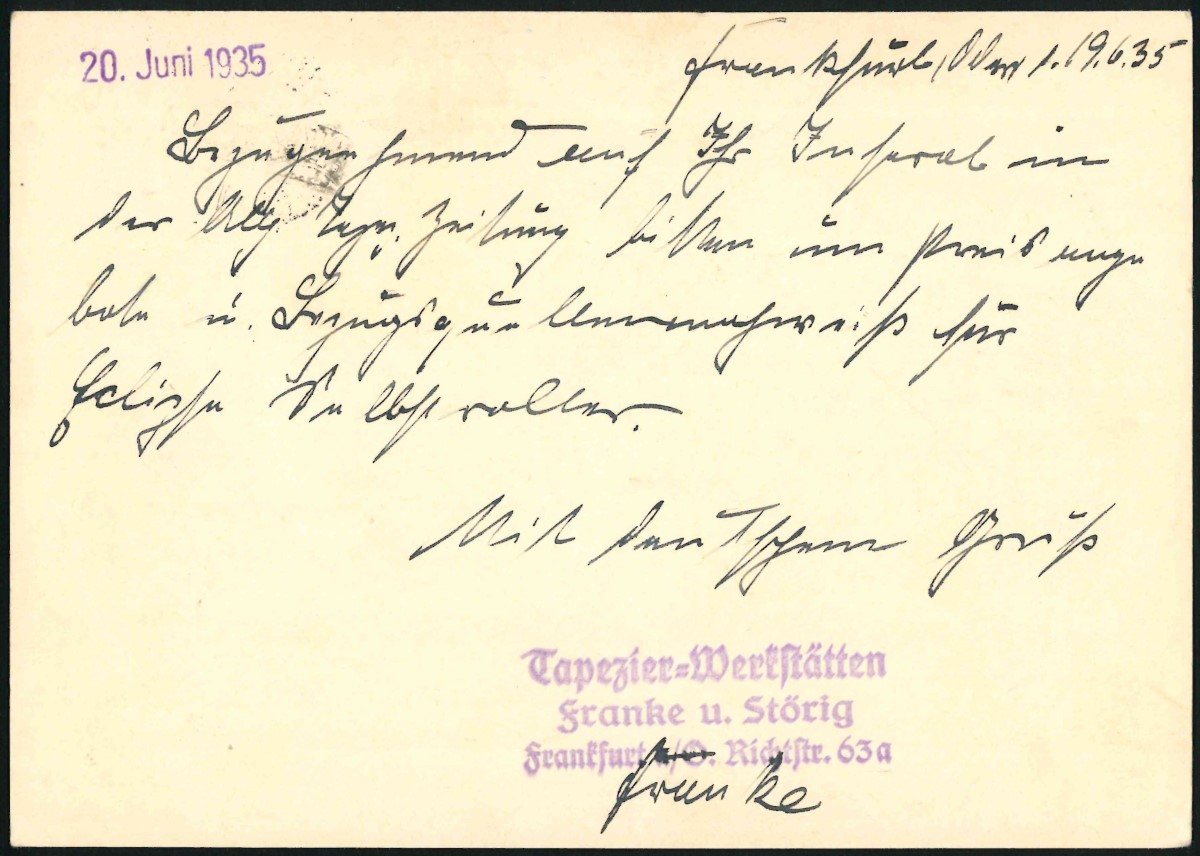 20. Juni 1935
Frankfurt, Oder d. 19.6.35
Bezugnehmend auf Ihr Inserat in
der Allg. Tapz. Zeitung bitten um Preisange
bote u. Bezugsquellennachweiß für
Eclipse Selbstroller.
Mit deutschem Gruß
Tapezier-Werkstätten
Franke u. Störig
Frankfurt a/O. Richtstr. 63a
Franke